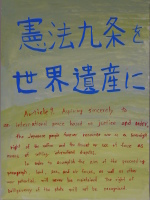 憲法九条を
世界遺産に
Article 9 Aspiring sincerely to
international peace based on justice and order,
the Japanese people forever renounce war as a sovereign
right of the nation and the threat or use of force as
means of settling international disputes.
In order to accomplish the aim of the preceding
paragraph, land, sea, and air forces, as well as other
war potential, will never be maintained. The right of
belligerency of the state will not be recognized.